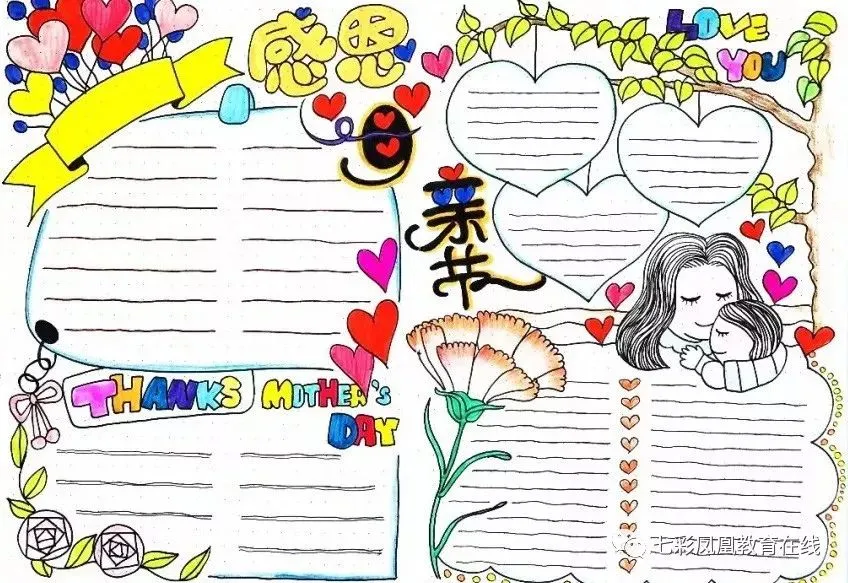 感恩
母
亲
节
LOVE
YOU
THANKS MOTHER'S
DAY
七彩凤凰教育在线